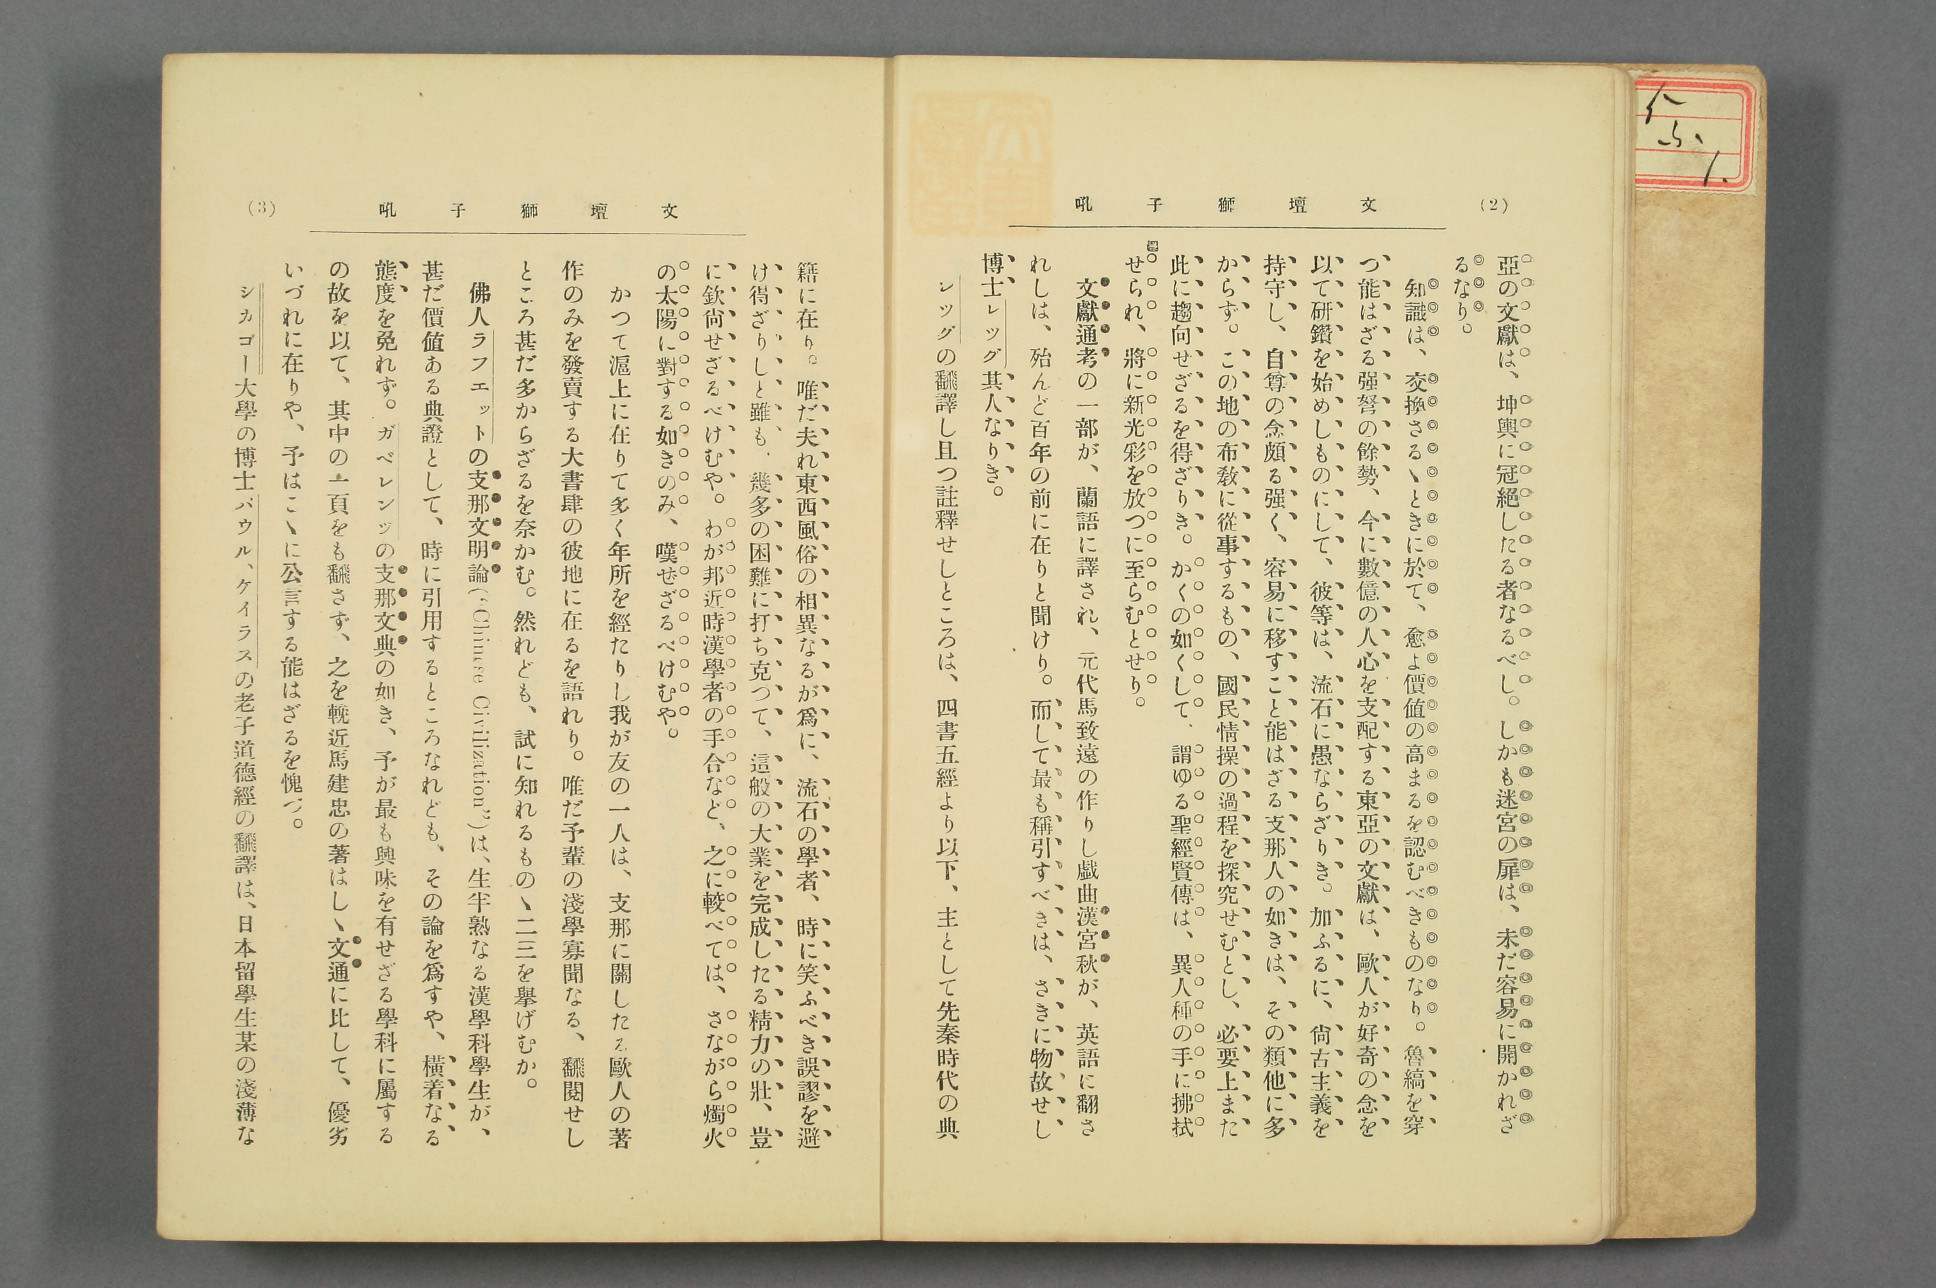 (2)
文壇獅子吼
亞の文獻は、坤輿に冠絕したる者なるべし。しかも迷宮の扉は、未だ容易に開かれざ
るなり。
知識は、交換さるゝときに於て、愈よ價値の高まるを認むべきものなり。魯縞を穿
つ能はざる强弩の餘勢、今に數億の人心を支配する東亞の文獻は、歐人が好奇の念を
以て硏鑽を始めしものにして、彼等は、流石に愚ならざりき。加ふるに、尙古主義を
持守し、自尊の念頗る强く、容易に移すこと能はざる支那人の如きは、その類他に多
からず。この地の布敎に從事するもの、國民情操の過程を探究せむとし、必要上また
此に趨向せざるを得ざりき。かくの如くして、謂ゆる聖經賢傳は、異人種の手に拂拭
せられ、將に新光彩を放つに至らむとせり。
文獻通考の一部が、蘭語に譯され、元代馬致遠の作りし戲曲漢宮秋が、英語に翻さ
れしは、殆んど百年の前に在りと聞けり。而して最も稱引すべきは、さきに物故せし
博士レッグ其人なりき。
レッグの飜譯し且つ註釋せしところは、四書五經より以下、主として先秦時代の典
文壇獅子吼
(3)
籍に在り。唯だ夫れ東西風俗の相異なるが爲に、流石の學者、時に笑ふべき誤謬を避
け得ざりしと雖も、幾多の困難に打ち克つて、這般の大業を完成したる精力の壯、豈
に欽尙せざるべけむや。わが邦近時漢學者の手合など、之に較べては、さながら燭火
の太陽に對する如きのみ、嘆ぜざるべけむや。
かつて滬上に在りて多く年所を經たりし我が友の一人は、支那に關したる歐人の著
作のみを發賣する大書肆の彼地に在るを語れり。唯だ予輩の淺學寡聞なる、飜閱せし
ところ甚だ多からざるを奈かむ。然れども、試に知れるものゝ二三を擧げむか。
佛人ラフエットの支那文明論(“Chinese Civilization”)は、生半熟なる漢學科學生が、
甚だ價値ある典證として、時に引用するところなれども、その論を爲すや、橫着なる
態度を免れず。ガベレンツの支那文典の如き、予が最も興味を有せざる學科に屬する
の故を以て、其中の一頁をも飜さず、之を輓近馬建忠の著はしゝ文通に比して、優劣
いづれに在りや、予はこゝに公言する能はざるを愧づ。
シカゴー大學の博士パウル、ケイラスの老子道德經の飜譯は、日本留學生某の淺薄な